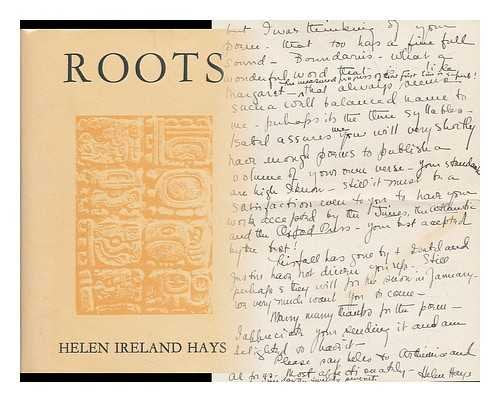 ROOTS
HELEN IRELAND HAYS
but I was thinking of your
poem. That too has a fine full
sound - Boundaries - what a
wonderful word that is
the measured progress of that first line is superb!
Margaret - that always seems
such a well balanced name to
me - perhaps its the three syllables -
Isabel assures me you will very shortly
have enough poems to publish a
volume of your own verse - your standards
are high I know - still it must be a
satisfaction even to you to have your
work accepted by the Times, the Atlantic
and the Oxford Press - your best accepted
by the best!
has gone by & David and
have not driven up - Still
perhaps they will for the snow in January -
We very much want you to come -
Many many thanks for the poem -
I appreciate your sending it and am
delighted to have it -
Please say hello to and
Most affectionately - Helen Hays